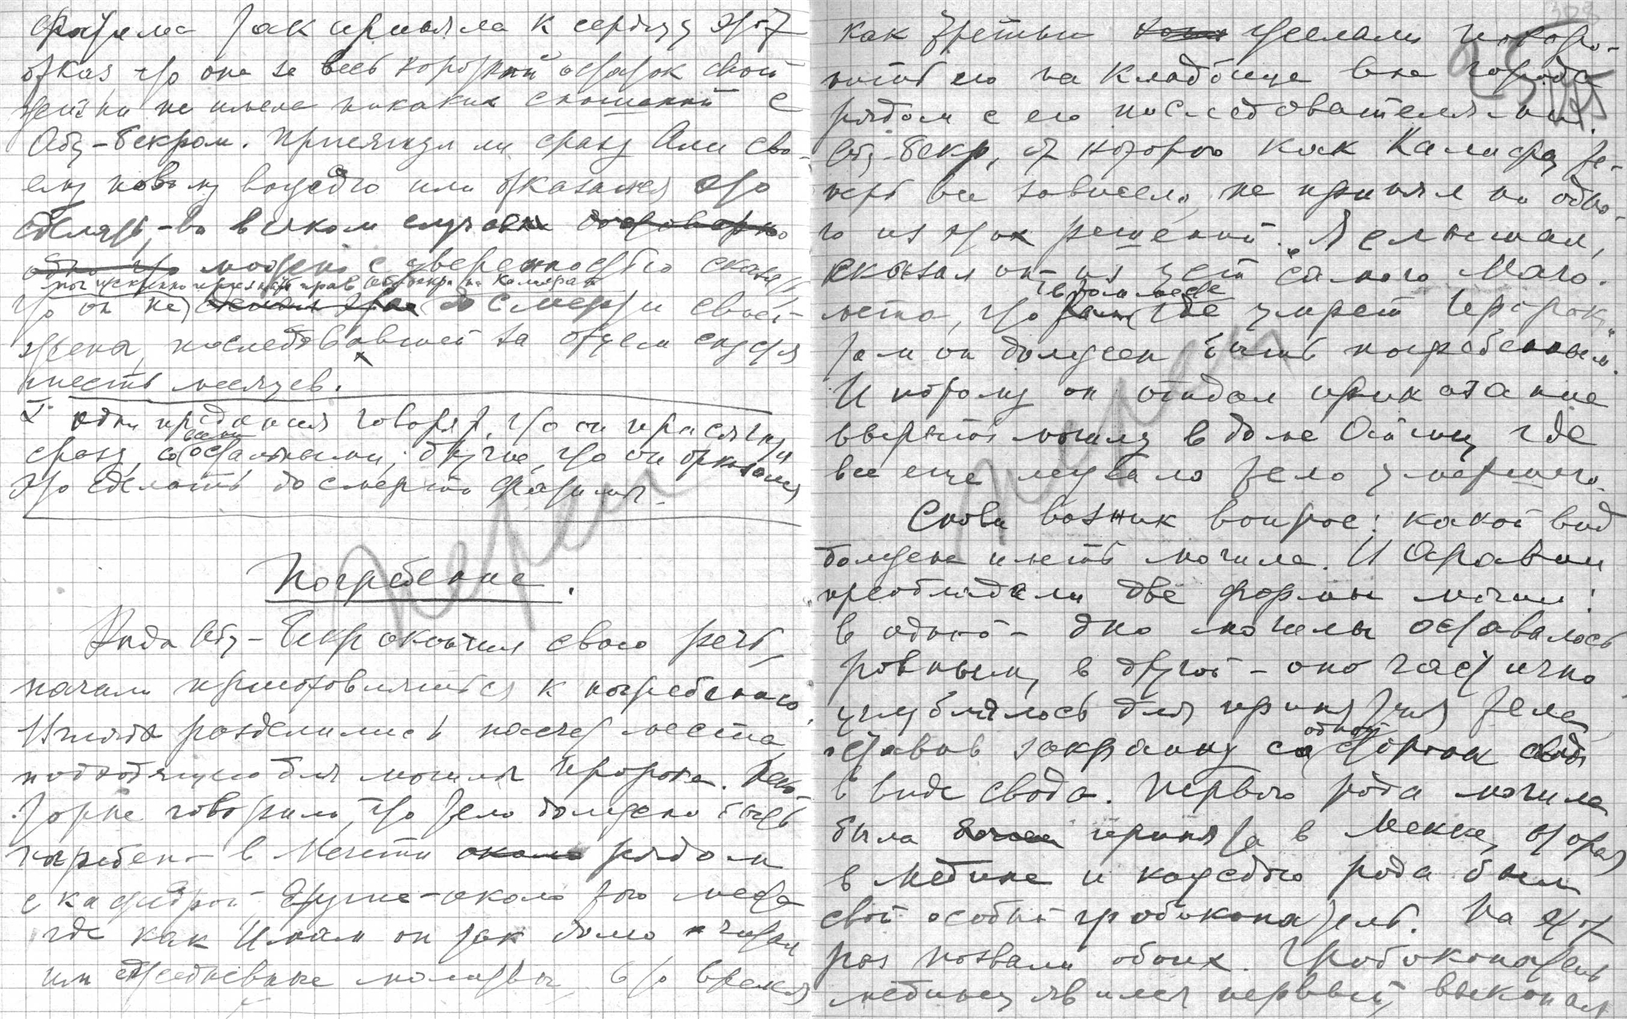 Фатима так приняла к сердцу этот
отказ что она за весь короткий остаток своей
жизни не имела никаких сношений с
Абу-Бекром. Присягнул ли сразу Али сво-
ему новому вождю или отказался это
сделать, - во всяком случае
можно с уверенностью сказать
что он не до смерти своей
жены, последовавшей за отцом спустя
шесть месяцев.
одни предания говорят, что он присягнул
сразу, со остальными; другие, что он отказался
это сделать до смерти Фатимы.
Погребение.
Когда Абу-Бекр окончил свою речь,
начали приготовляться к погребению.
Мнения разделились насчет места,
подходящего для могилы Пророка. Неко-
торые говорили, что тело должно быть
погребено в Мечети рядом
с кафедрой - другие - около того места
где как Имам он так долго читал
им ежедневные молитвы, в то время
как третьи желали похоро-
нить его на кладбище вне города
рядом с его последователями.
Абу-Бекр, от которого как Калифа те-
перь все зависело, не принял ни одно-
го из этих решений. "Я слышал,
сказал он - из уст самого Маго-
мета, что в том месте где умрет Пророк,
там он должен быть погребенным".
И потому он отдал приказание
вырыть могилу в доме Айши, где
все еще лежало тело умершего.
Снова возник вопрос: какой вид
должна иметь могила. И Аравии
преобладали две формы могил:
в одной - дно могилы оставалось
ровным, в другой - оно частично
углублялось для принятия тела,
оставив закраину с одной стороны
в виде свода. Первого рода могила
была принята в Мекке, вторая
в Медине и каждого рода был
свой особый гробокопатель. На этот
раз позвали обоих. Гробокопатель
медины явился первый, выкопал